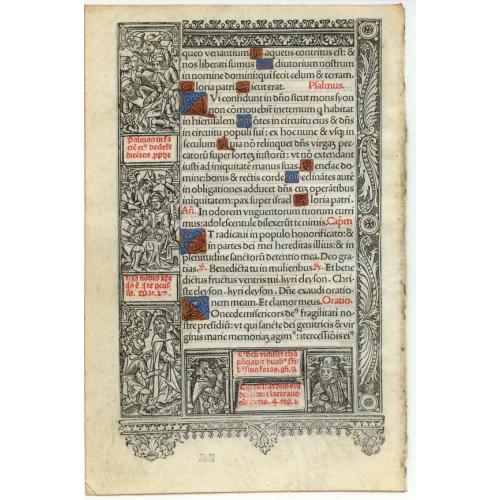 queo venantium: Laqueus contritus est: &
nos liberati sumus Adiutorium nostrum
in nomine domini: qui fecit celum & terram.
Gloria patri. Sicut erat. Psalmus.
QVi confidunt in dño sicut mons syon
non cõmouebit̃ ineternum q habitat
in hierusalem Mõtes in circuitu eius & dñs
in circuitu populi sui: ex hoc nunc & vsq; in
seculum Quia nõ relinquet dñs virgaz pec
catorũ super sortez iustorũ: vt nõ extendant
iusti ad iniquitatẽ manus suas. Benefac do
mine: bonis & rectis corde Declinãtes autẽ
in obligationes adducet dñs cuz operãtibus
iniquitatem: pax super israel Gloria patri.
Añ. In odorem vnguentorum tuorum curri
mus: adolescentule dilexerũt te nimis. Capm̃
ET radicaui in populo honorificato: &
in partes dei mei hereditas illius: & in
plenitudine sanctorũ detentio mea. Deo gra
tias. ℣. Benedicta tu in mulieribus ℟. Et bene
dictus fructus ventris tui. kyri eleyson. Chri
ste eleyson. kyri eleyson. Dñe exaudi oratio
nem meam. Et clamor meus. Oratio.
COncede misericors de⁹ fragilitati no
stre presidiũ: vt qui sancte dei genitricis & vir
ginis marie memoriaz agim⁹: intercessiõis ei⁹
Palmas in fa
ciẽ ei⁹ dedẽt